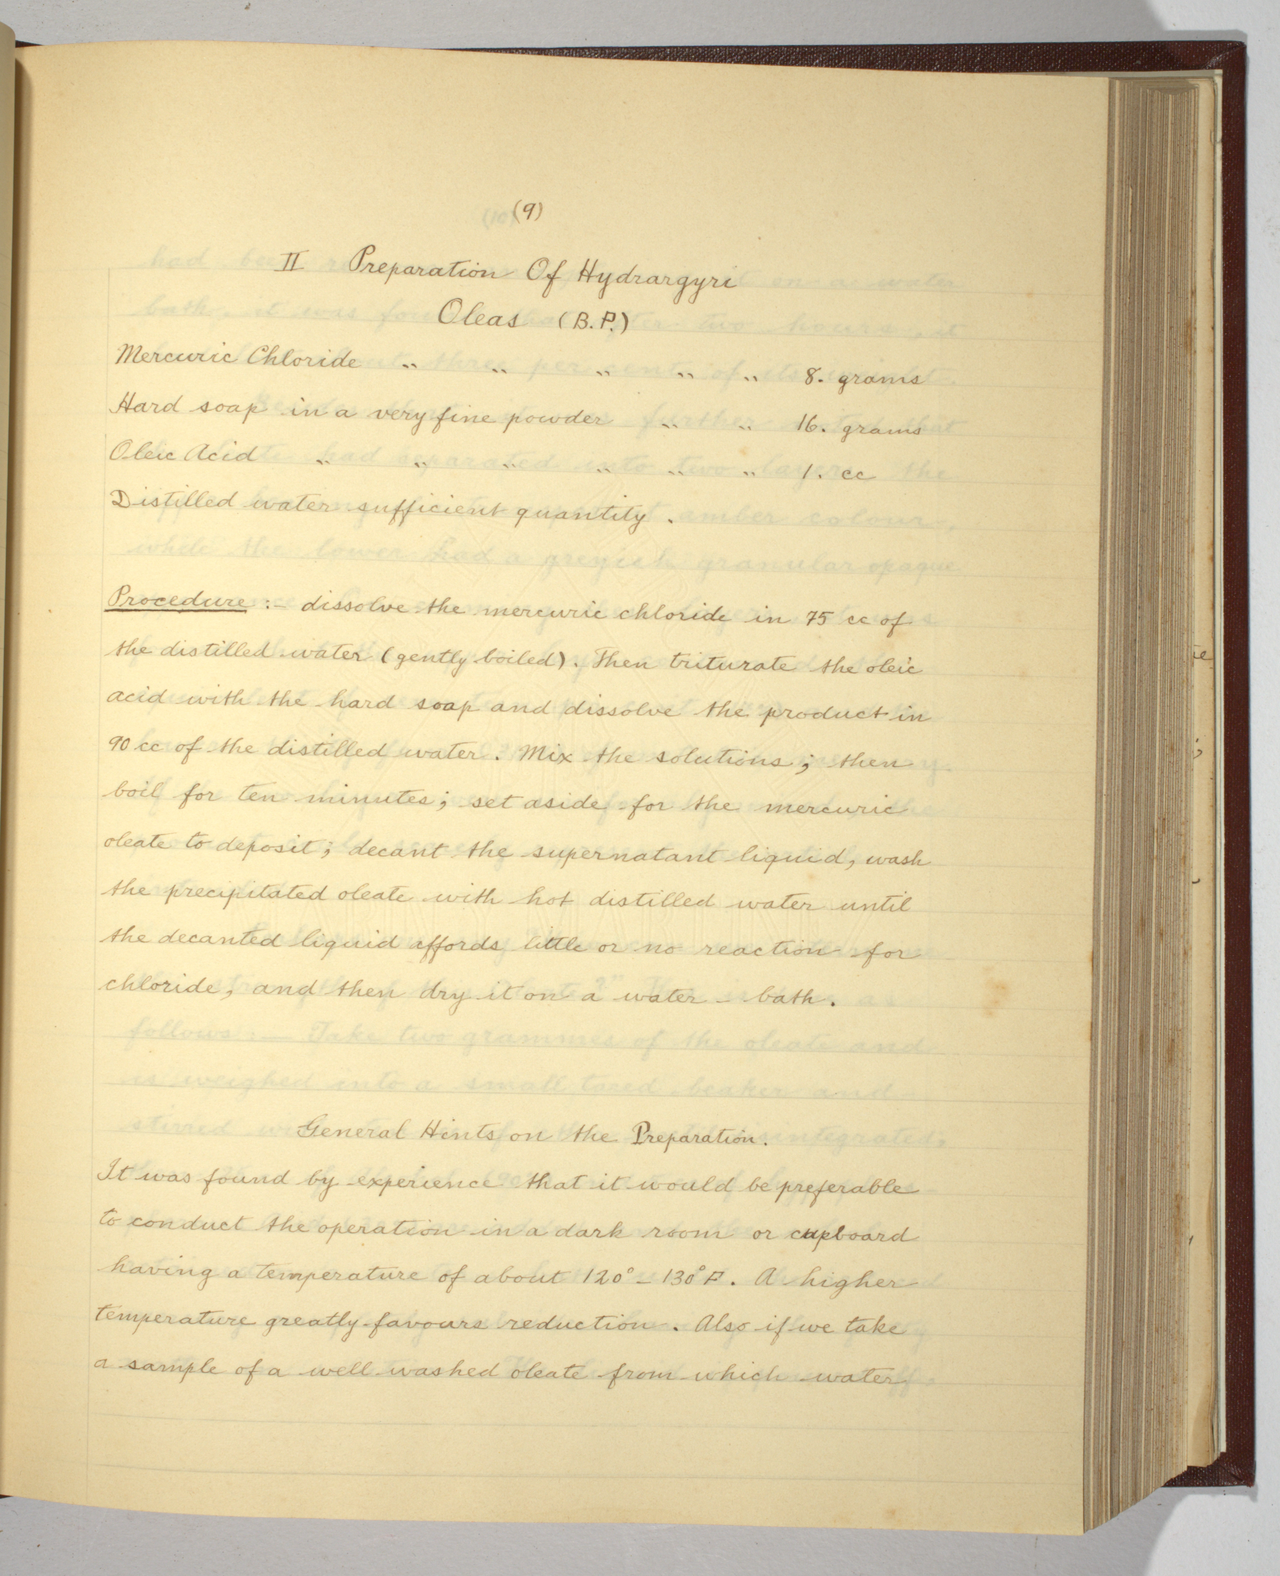 (9)
II Preparation Of Hydrargyri
Oleas (B.P.)
Mercuric Chloride " " " " " 8. grams
Hard soap in a very fine powder " " 16. grams
Oleic Acid " " " " " " 1. cc
Distilled water sufficient quantity.
Procedure :- dissolve the mercuric chloride in 75 cc of
the distilled water (gently boiled). Then triturate the oleic
acid with the hard soap and dissolve the product in
90 cc of the distilled water. Mix the solutions; then
boil for ten minutes; set aside for the mercuric
oleate to deposit; decant the supernatant liquid, wash
the precipitated oleate with hot distilled water until
the decanted liquid affords little or no reaction for
chloride, and then dry it on a water-bath.
General Hints on the Preparation.
It was found by experience that it would be preferable
to conduct the operation in a dark room or cupboard
having a temperature of about 120°-130°F. A higher
temperature greatly favours reduction. Also if we take
a sample of a well washed oleate from which water